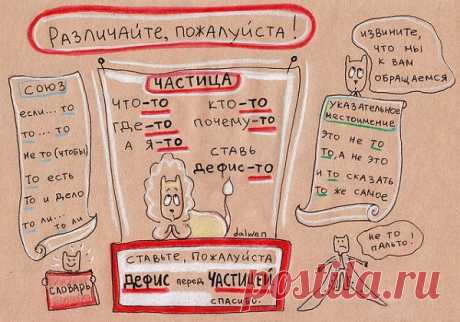 Различайте, пожалуйста!
СОЮЗ
если... то
то ... то
не то (чтобы)
то есть
то и дело
то ли... то ли
словарь
ЧАСТИЦА
что-то
кто-то
где-то
почему-то
а я-то
ставь
дефис-то
dalwen
ставьте, пожалуйста
дефис перед частицей
спасибо.
извините,
что мы
к вам
обращаемся
указательное
местоимение
Это не то
То, а не это
и то сказать
то же самое
не то
пальто!
posta-la.ru